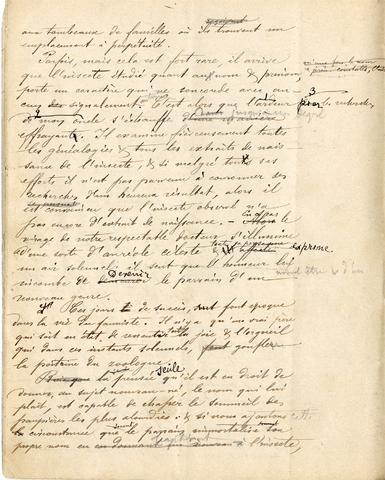 aux tombeaux de familles où ils trouvent un
emplacement à perpétuité.
Parfois, mais cela est fort rare, il arrive
que l'insecte étudié quant au nom & prénom,
porte un caractère qui ne concorde avec au-
cun signalement. C'est alors que l'ardeur
3
pour les recherches
d' mon oncle s'échauffe
effrayant. Il examine fiévreusement toutes
les généalogies & tous les extraits de nais-
sance de l'insecte, & si malgré tous ses
efforts il n'est pas parvenu à couronner ses
recherches d'un heureux résultat, alors il
est convaincu que l'insecte observé n'a
pas encore d'extrait de naissance. — le
visage de notre respectable docteur s'illumine
d'une sorte d'auréole céleste &
suprême
un air solennel; il sent que l'honneur lui
incombe de devenir le parrain d'un
nouveau genre.
Ces jours de succès, font époque
dans la vie du savant. Il n'y a qu'un vrai père
qui soit en état de la joie & l'orgueil
qui dans ces instants solennels, gonfler
la poitrine du zoologue.
la pensée seule qu'il est en droit de
donner, au sujet nouveau-né, le nom qui lui
plaît, est capable de chasser le sommeil des
paupières les plus alourdies: & si nous ajoutons
la circonstance que le parrain immortalise son
propre nom en à l'insecte,